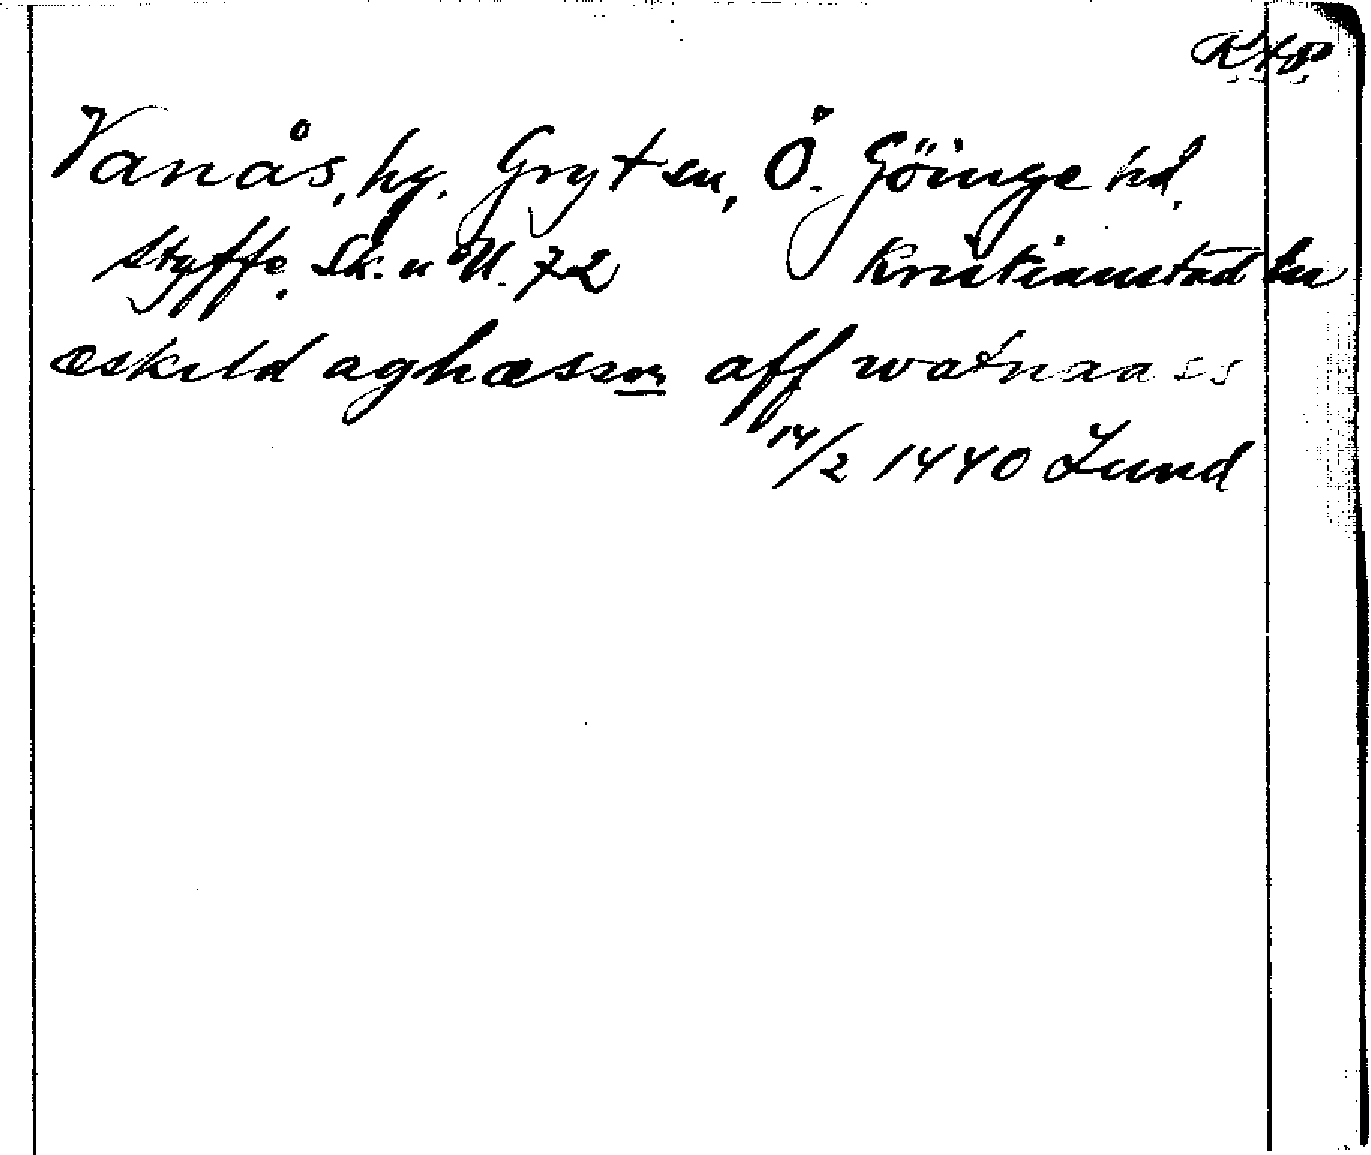 Vanås, hg. Gryt sn, Ö. Göinge hd.
Styffe. Sk. u U. 72 Kristianstad ln
æskild aghæsson aff watnaa ss
14/2 1440 Lund